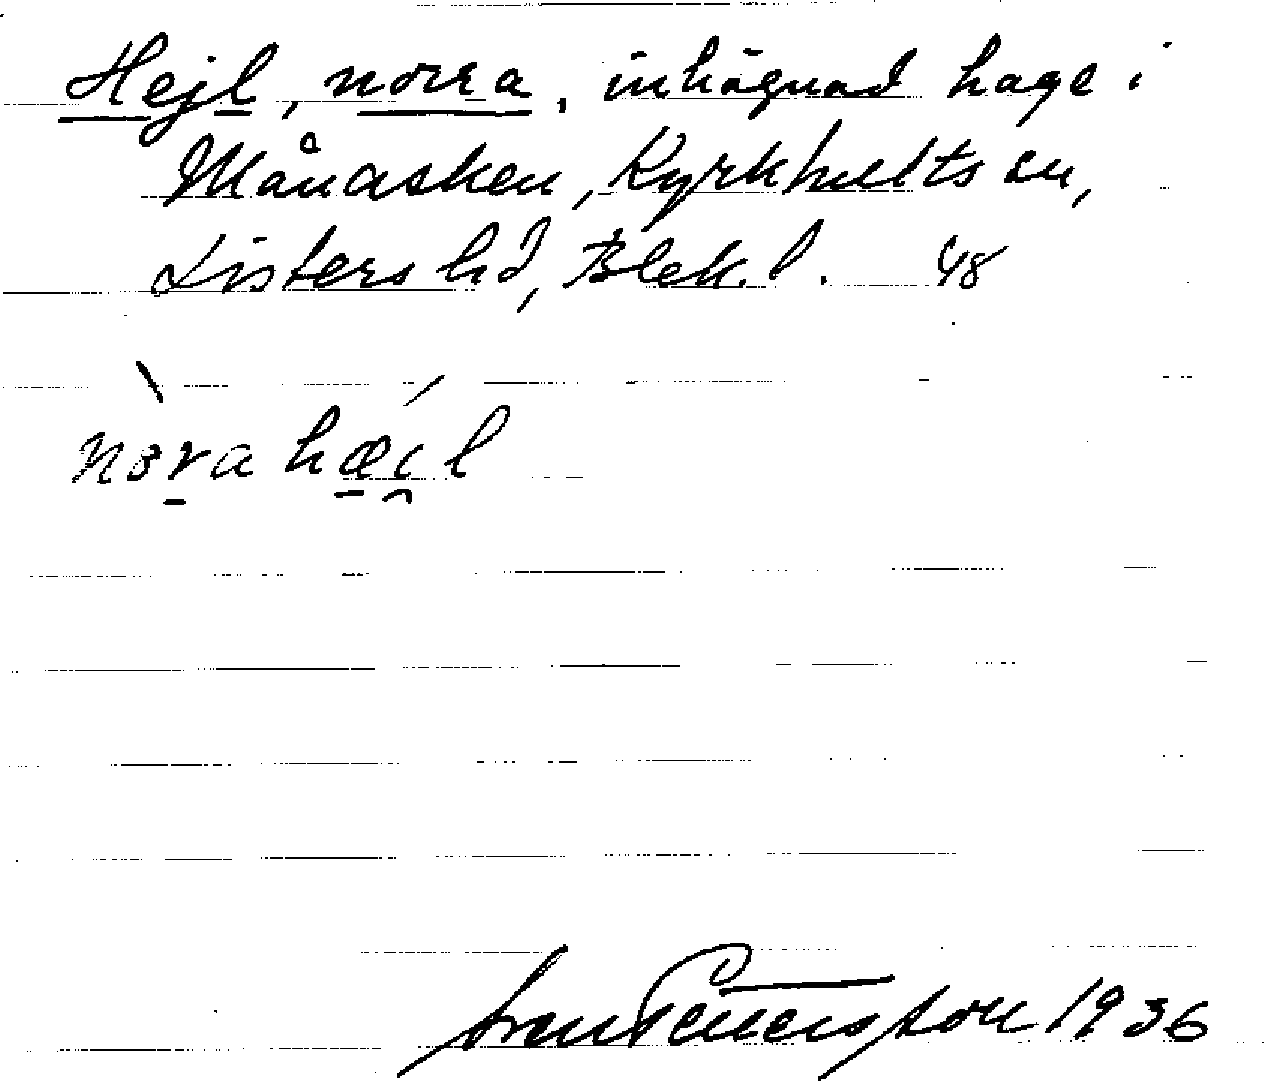 Hejl, norra, inhägnad hage i
Månasken, Kyrkhults sn,
Listers hd, Blek. l. 48
nɔra hæi̯l
Sven Petersson 1936